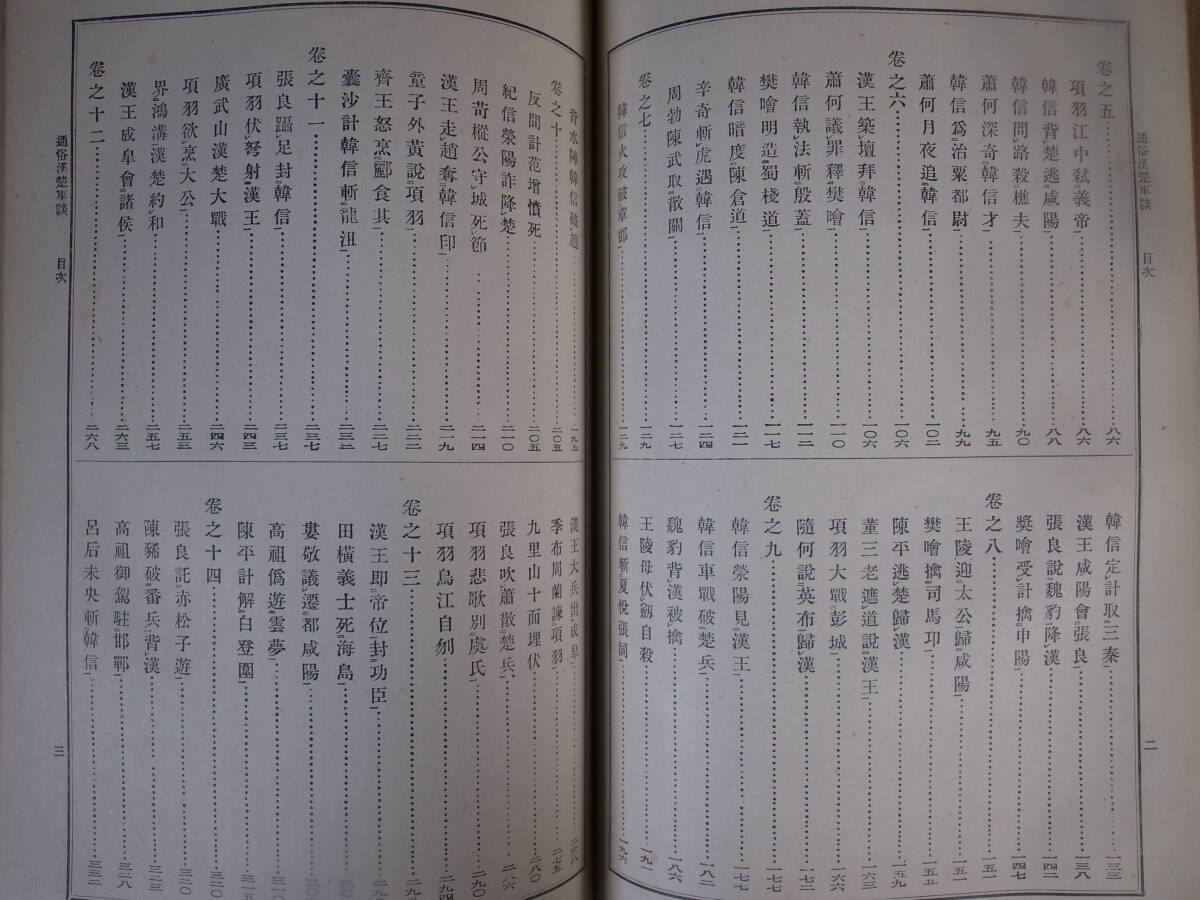 通俗漢楚軍談 目次 二
卷之五 八六
項羽江中弒義帝 八六
韓信背楚逃咸陽 八八
韓信問路殺樵夫 九〇
蕭何深奇韓信才 九五
韓信爲治粟都尉 九九
蕭何月夜追韓信 一〇二
卷之六 一〇六
漢王築壇拜韓信 一〇六
蕭何議罪釋樊噲 一一〇
韓信執法斬殷蓋 一一二
樊噲明造蜀棧道 一一七
韓信暗度陳倉道 一二一
辛奇斬虎遇韓信 一二四
周勃陳武取散關 一二七
卷之七 一二九
韓信火攻破章邯 一二九
韓信定計取三秦 一三三
漢王咸陽會張良 一三八
張良說魏豹降漢 一四二
樊噲受計擒申陽 一四七
卷之八 一五一
王陵迎太公歸咸陽 一五一
樊噲擒司馬卬 一五五
陳平逃楚歸漢 一五九
董三老遮道說漢王 一六三
項羽大戰彭城 一六六
隨何說英布歸漢 一七二
卷之九 一七七
韓信滎陽見漢王 一七七
韓信車戰破楚兵 一八二
魏豹背漢被擒 一八六
王陵母伏劔自殺 一九一
韓信斬夏悅張仝 一九六
背水陣韓信破趙 一九五
卷之十 二〇五
反間計范增憤死 二〇五
紀信滎陽詐降楚 二一〇
周苛樅公守城死節 二一四
漢王走趙奪韓信印 二一九
童子外黃說項羽 二二二
齊王怒烹酈食其 二二七
囊沙計韓信斬龍沮 二三二
卷之十一 二三七
張良躡足封韓信 二三七
項羽伏弩射漢王 二四三
廣武山漢楚大戰 二四六
項羽欲烹太公 二五三
界鴻溝漢楚約和 二五七
漢王成皐會諸侯 二六三
卷之十二 二六八
漢王大兵出成皐 二六八
季布周蘭諫項羽 二七五
九里山十面埋伏 二八〇
張良吹簫散楚兵 二八六
項羽悲歌別虞氏 二九〇
項羽烏江自刎 二九四
卷之十三
漢王即帝位封功臣
田橫義士死海島
婁敬議遷都咸陽
高祖僞遊雲夢
陳平計解白登圍
卷之十四 三二〇
張良託赤松子遊 三二〇
陳豨破番兵背漢 三二三
高祖御駕駐邯鄲 三二八
呂后未央斬韓信 三三二
通俗漢楚軍談 目次 三